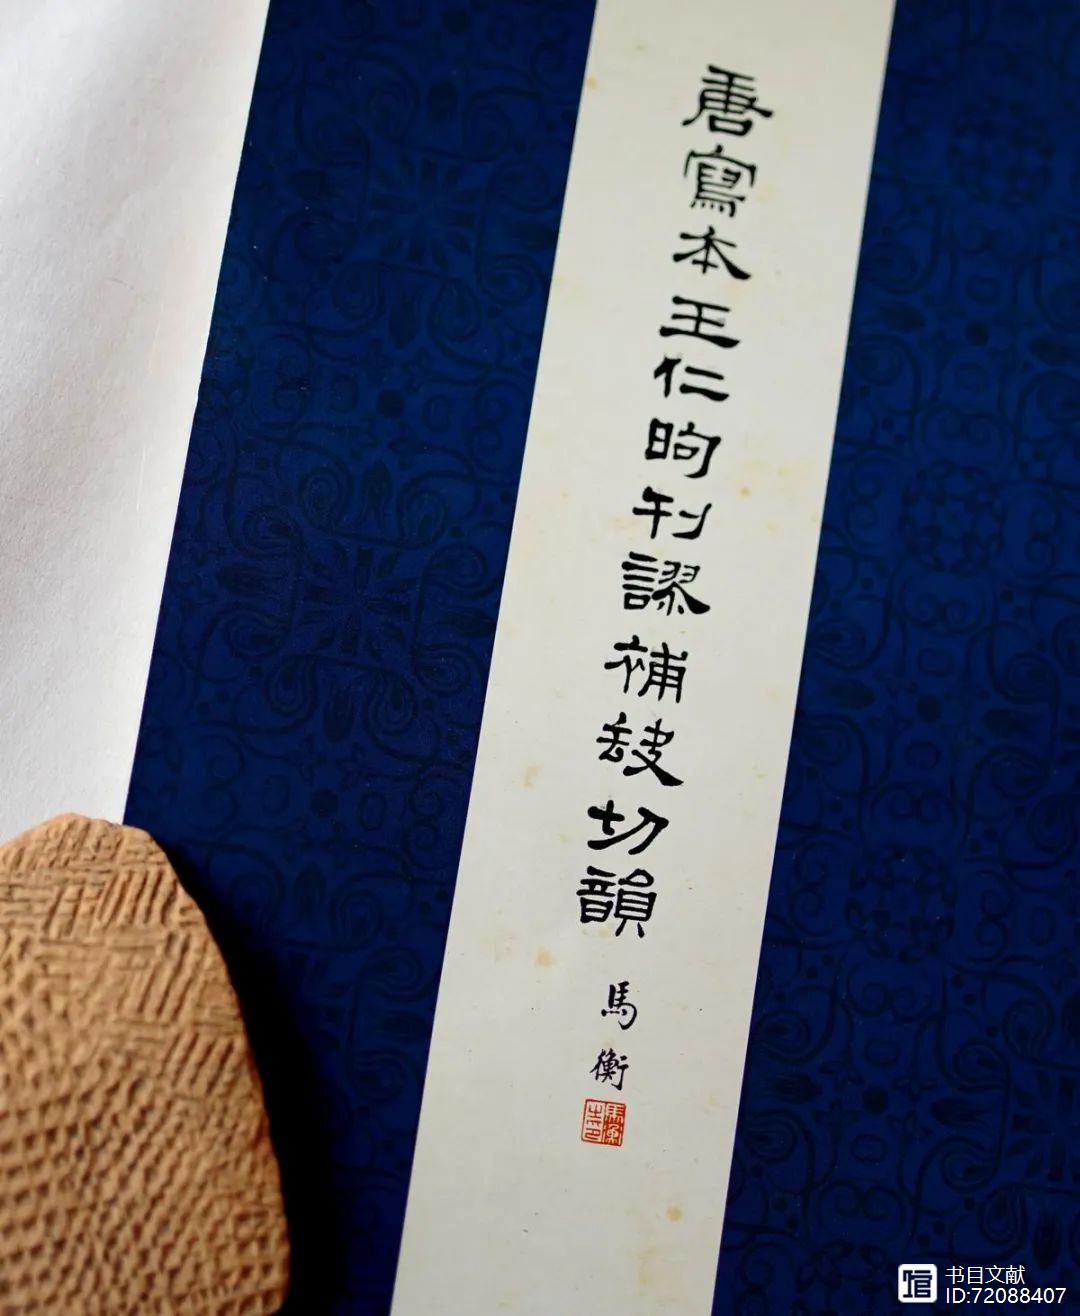 唐寫本王仁昫刊謬補缺切韻
馬衡
書目文献
ID:72088407